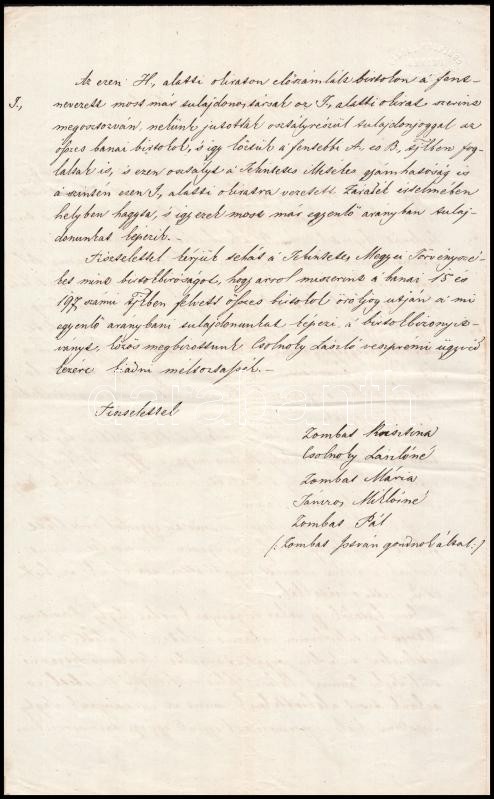 Az ezen H, alatti okiraton előszámlált birtokon a fent-
I., nevezett most már tulajdonostársak az I, alatti okirat szerint
megosztozván, nekünk jutottak osztályrészül tulajdonjoggal az
összes banai birtokok, s így köztük a fentebbi A. és B, tjkben fog-
laltak is, s ezen osztályt a Tekintetes illetékes gyámhatóság is
a szintén ezen I, alatti okiratra vezetett Záradék értelmében
helyben hagyta, s így ezek most már egyenlő arányban tulaj-
donunkat képezik. –
Tisztelettel kérjük tehát a Tekintetes Megyei Törvényszé-
ket mint birtokbíróságot, hogy arról miszerint a banai 15 és
197 számú tjkben felvett összes birtokok öröklög utján a mi
egyenlő aránybani tulajdonunkat képezi, a birtokbizonyit-
ványt, közös megbizottunk Csolnoky László veszprémi ügyvéd
kezére kiadni méltóztassék. –
Tisztelettel
Zombat Krisztina
Csolnoky Lászlóné
Zombat Mária
Táncros Miklósné
Zombat Pál
(: Zombat István gondnok által :)